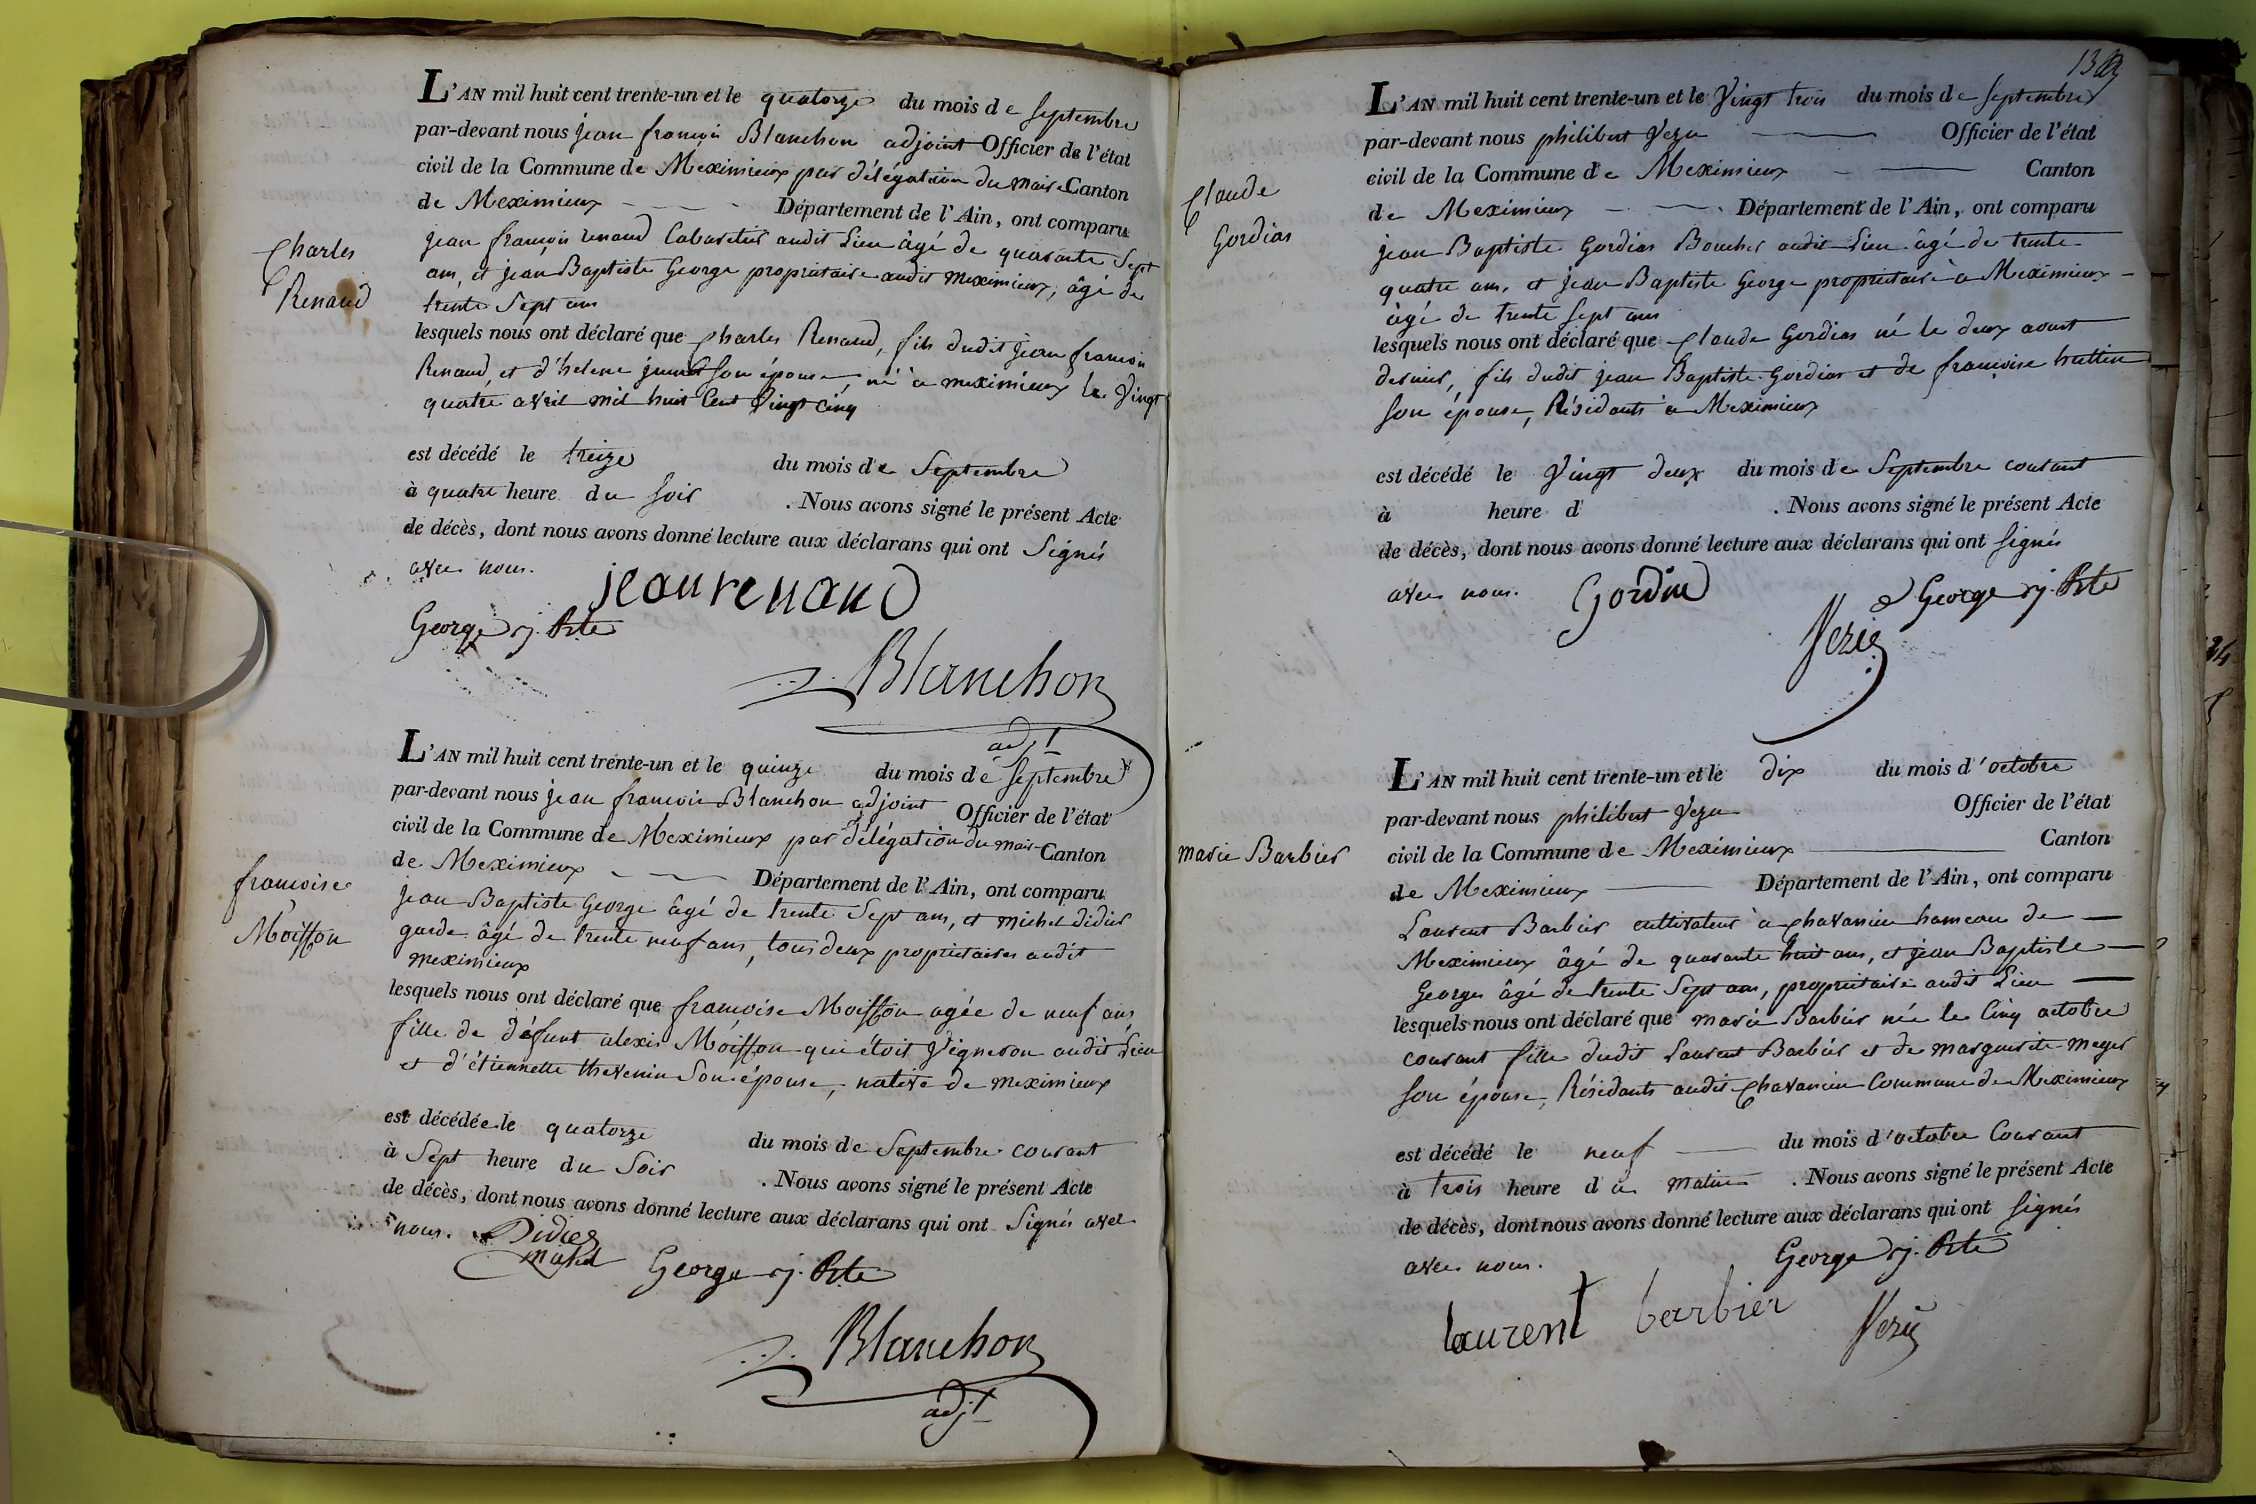 L'AN mil huit cent trente-un et le quatorze du mois de septembre
par-devant nous jean françois Blanchon adjoint Officier de l'état
civil de la Commune de Méximieux par délégation du maire Canton
de Meximieux Département de l'Ain, ont comparu
jean françois renaud Cabaretier audit Lieu âgé de quarante Sept
ans, et jean Baptiste George propriétaire audit meximieux, âgé de
trente Sept ans
lesquels nous ont déclaré que Charles Renaud, fils dudit jean françois
Renaud, et d'helene son épouse, né à meximieux le Vingt
quatre avril mil huit Cent Vingt cinq
est décédé le treize du mois de Septembre
à quatre heure du soir . Nous avons signé le présent Acte
de décès, dont nous avons donné lecture aux déclarans qui ont Signés
avec nous.
jean renaud
George Bte
Blanchon
adjt
Charles
Renaud
L'AN mil huit cent trente-un et le quinze du mois de septembre
par-devant nous jean francois Blanchon adjoint Officier de l'état
civil de la Commune de Meximieux par délégation du maire Canton
de Meximieux Département de l'Ain, ont comparu
jean Baptiste George âgé de trente Sept ans, et michel didier
garde âgé de trente neuf ans, tous deux propriétaires audit
meximieux
lesquels nous ont déclaré que francoise Moisson agée de neuf ans
fille de défunt alexis Moisson qui étoit Vigneron audit Lieu
et d'étiennette thevenin Son épouse, native de meximieux
est décédée le quatorze du mois de Septembre courant
à Sept heure du Soir . Nous avons signé le présent Acte
de décès, dont nous avons donné lecture aux déclarans qui ont Signés avec
nous. Didier
michel George Bte
Blanchon
adjt
francoise
Moisson
13
L'AN mil huit cent trente-un et le Vingt trois du mois de septembre
par-devant nous philibert Vezu Officier de l'état
civil de la Commune de Meximieux Canton
de Meximieux Département de l'Ain, ont comparu
jean Baptiste Gordias Boucher audit Lieu âgé de trente
quatre ans, et jean Baptiste George propriétaire à Meximieux
âgé de trente sept ans
lesquels nous ont déclaré que Claude Gordias né le deux aoust
dernier, fils dudit jean Baptiste Gordias et de françoise huttin
son épouse, Résidants à Meximieux
est décédé le Vingt deux du mois de Septembre courant
à heure d . Nous avons signé le présent Acte
de décès, dont nous avons donné lecture aux déclarans qui ont signés
avec nous. George Bte
Claude
Gordias
L'AN mil huit cent trente-un et le dix du mois d'octobre
par-devant nous philibert Vezu Officier de l'état
civil de la Commune de Meximieux Canton
de Meximieux Département de l'Ain, ont comparu
Laurent Barbier cultivateur à Chavanieu hameau de
Meximieux âgé de quarante huit ans, et jean Baptiste
Georges âgé de trente Sept ans, propriétaire audit Lieu
lesquels nous ont déclaré que marie Barbier née le Cinq octobre
courant fille dudit Laurent Barbier et de marguerite
son épouse, Résidants audit Chavanieu Commune de Meximieux
est décédé le neuf du mois d'octobre Courant
à trois heure du matin . Nous avons signé le présent Acte
de décès, dont nous avons donné lecture aux déclarans qui ont signés
avec nous. George Bte
laurent barbier
marie Barbier